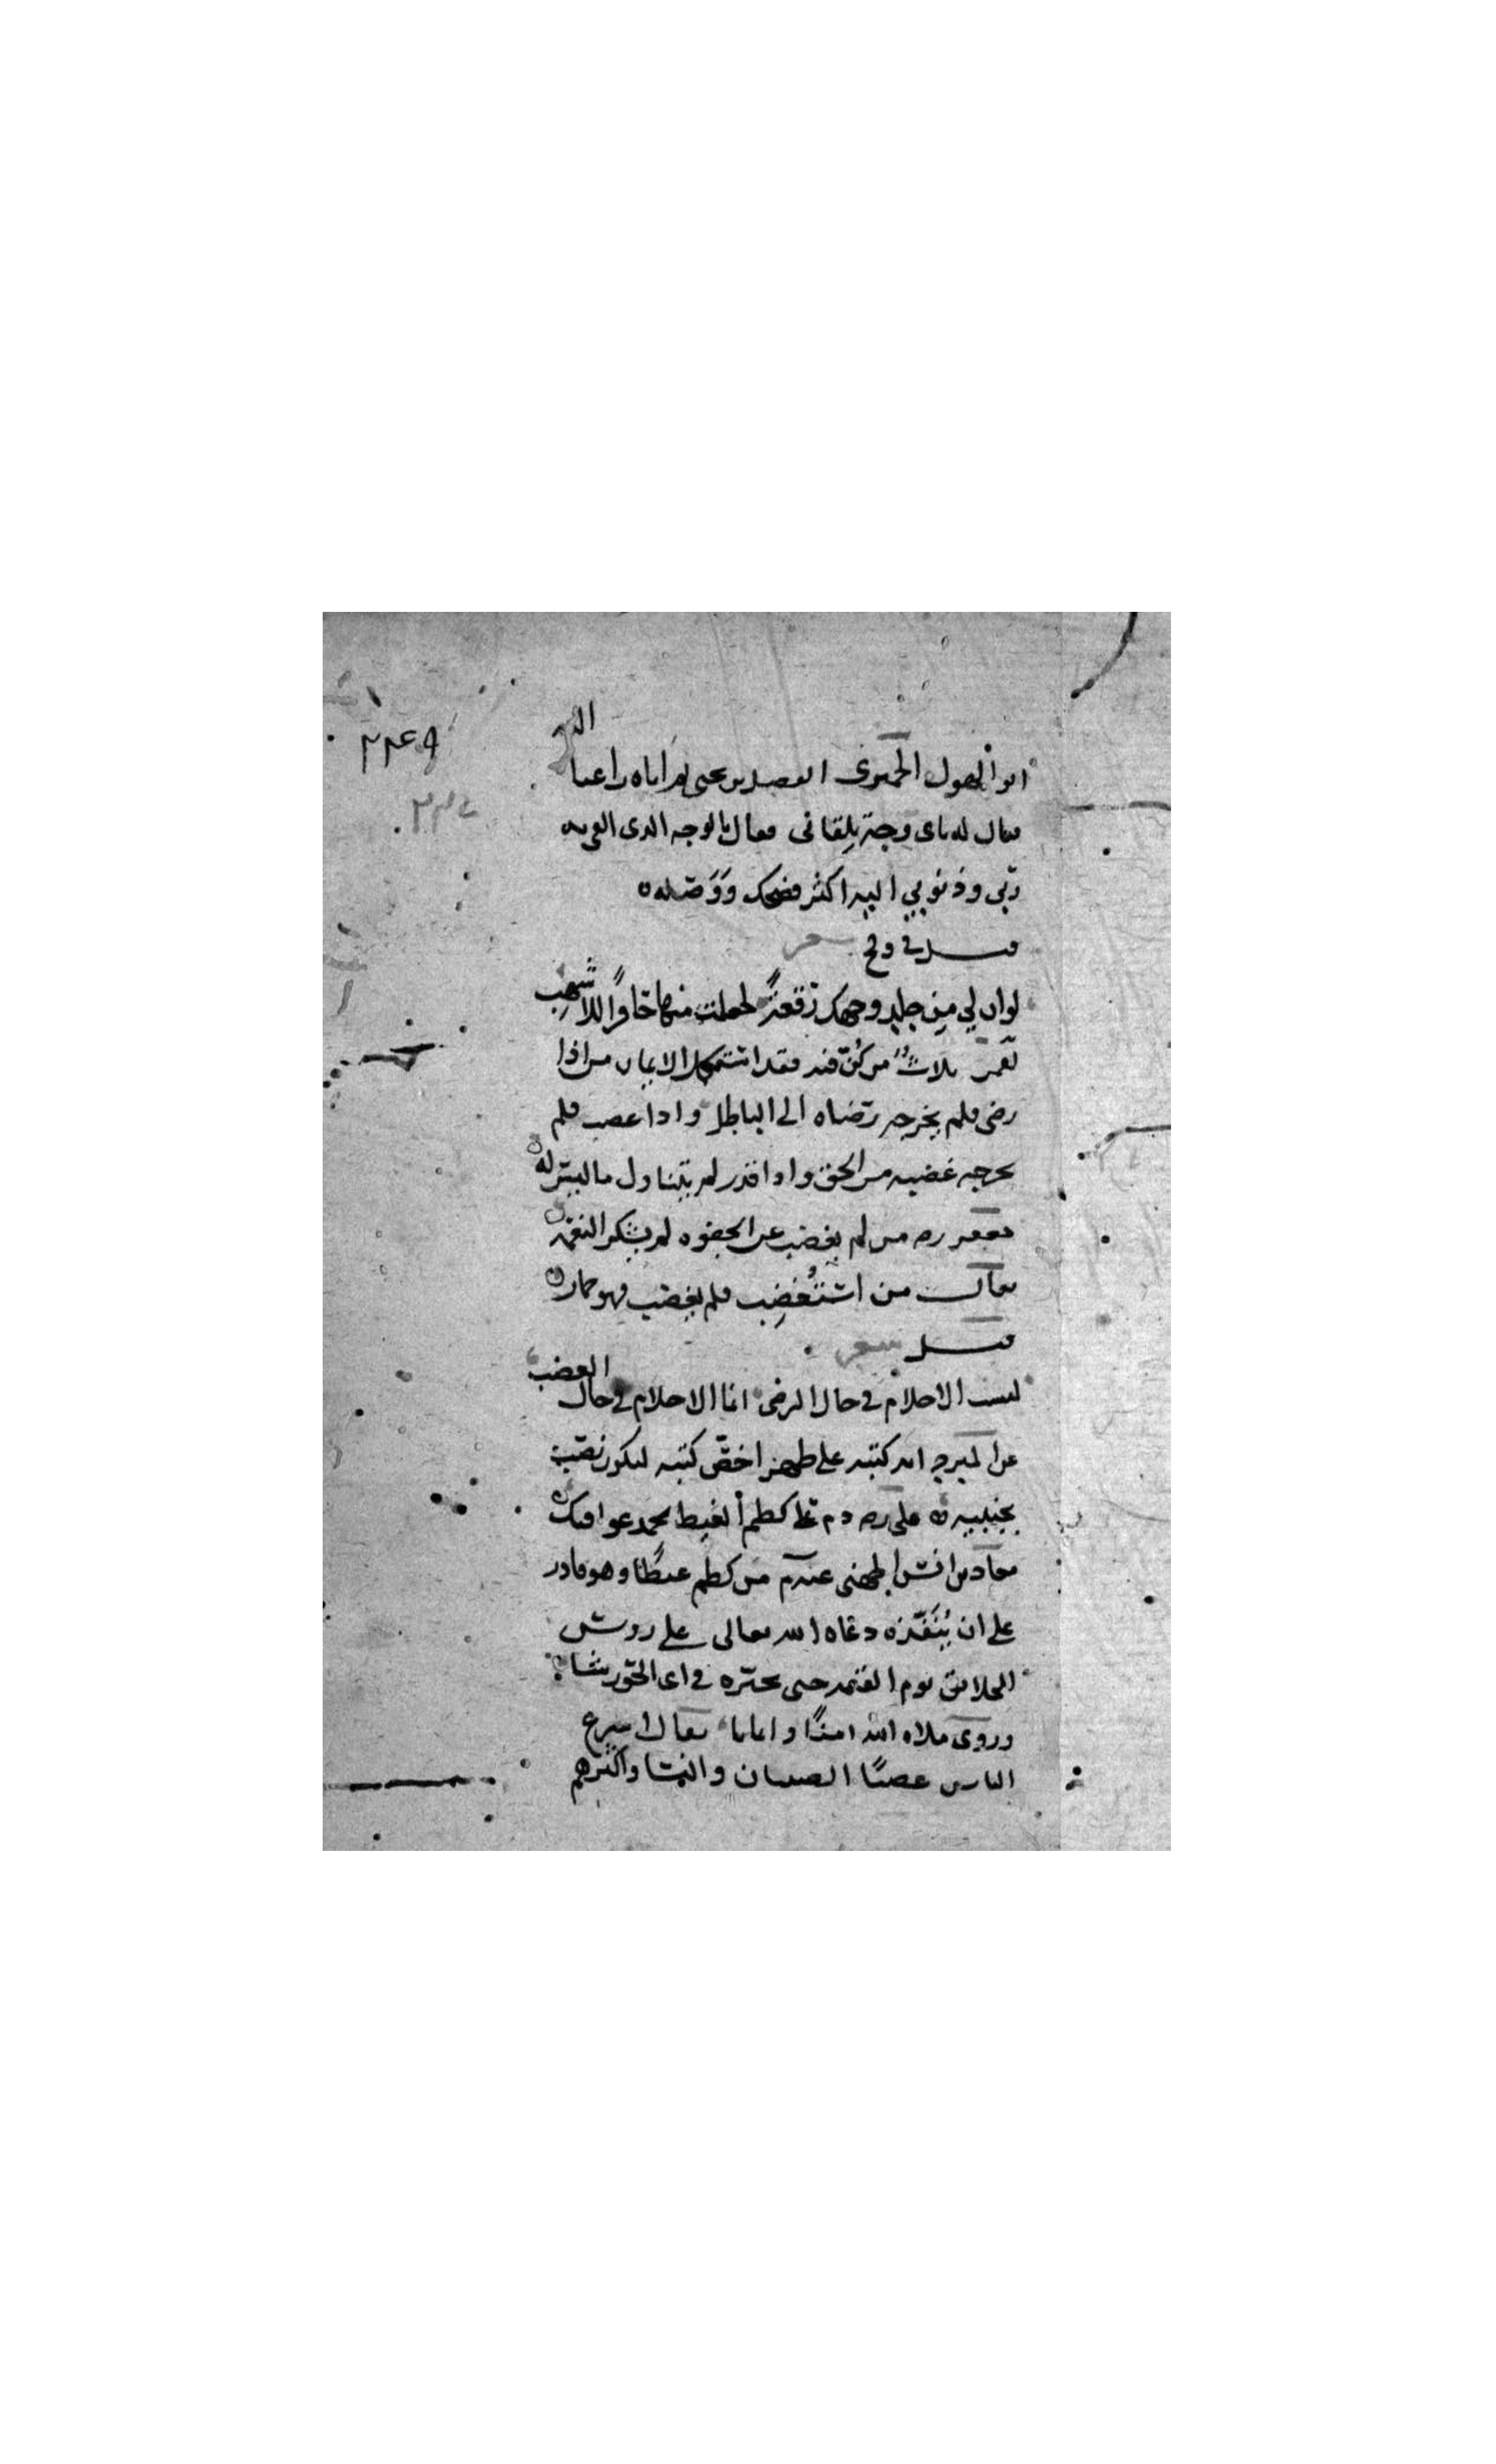 ٢٢٤٩
اليه
ابو الهول الحميرى الفضل بن يحيى ثم اتاه راغبا
فقال له باى وجه يلقانى فقال بالوجه الذى القى به
ربى وذنوبي اليه اكثر فضحك ووصله ه
قيل فى وقح شعر
لو ان لي من جلد وجهك رقعة لجعلت منها حافرًا للاشهب
لقمن ثلاثٌ من كن فيه فقد استكمل الايمان من اذا
رضى فلم يخرجه رضاه الى الباطل واذا غضب فلم
يخرجه غضبه من الحق واذا قدر لم يتناول ما ليس له ه
جعفر ره من لم يغضب عن الجفوه لم يشكر النعمه ه
يقال من استُغضِب فلم يغضب فهو حمار ه
قيل شعر
ليست الاحلام فى حال الرضى انما الاحلام فى حال الغضب
عن المبرد انه كتبه على ظهر اخص كتبه ليكون نصب
عينيه ه على ره دم على كظم الغيظ تحمد عواقبك ه
معاذ بن انس الجهنى عنه م من كظم غيظًا وهو قادر
على ان يُنَفّذه دعاه الله تعالى على روس
الخلايق يوم القيمه حتى يخيره فى اى الحور شا
وروى ملاه الله امنًا و ايمانا يقال اسرع
الناس غضبًا الصبيان والنسا واكثرهم